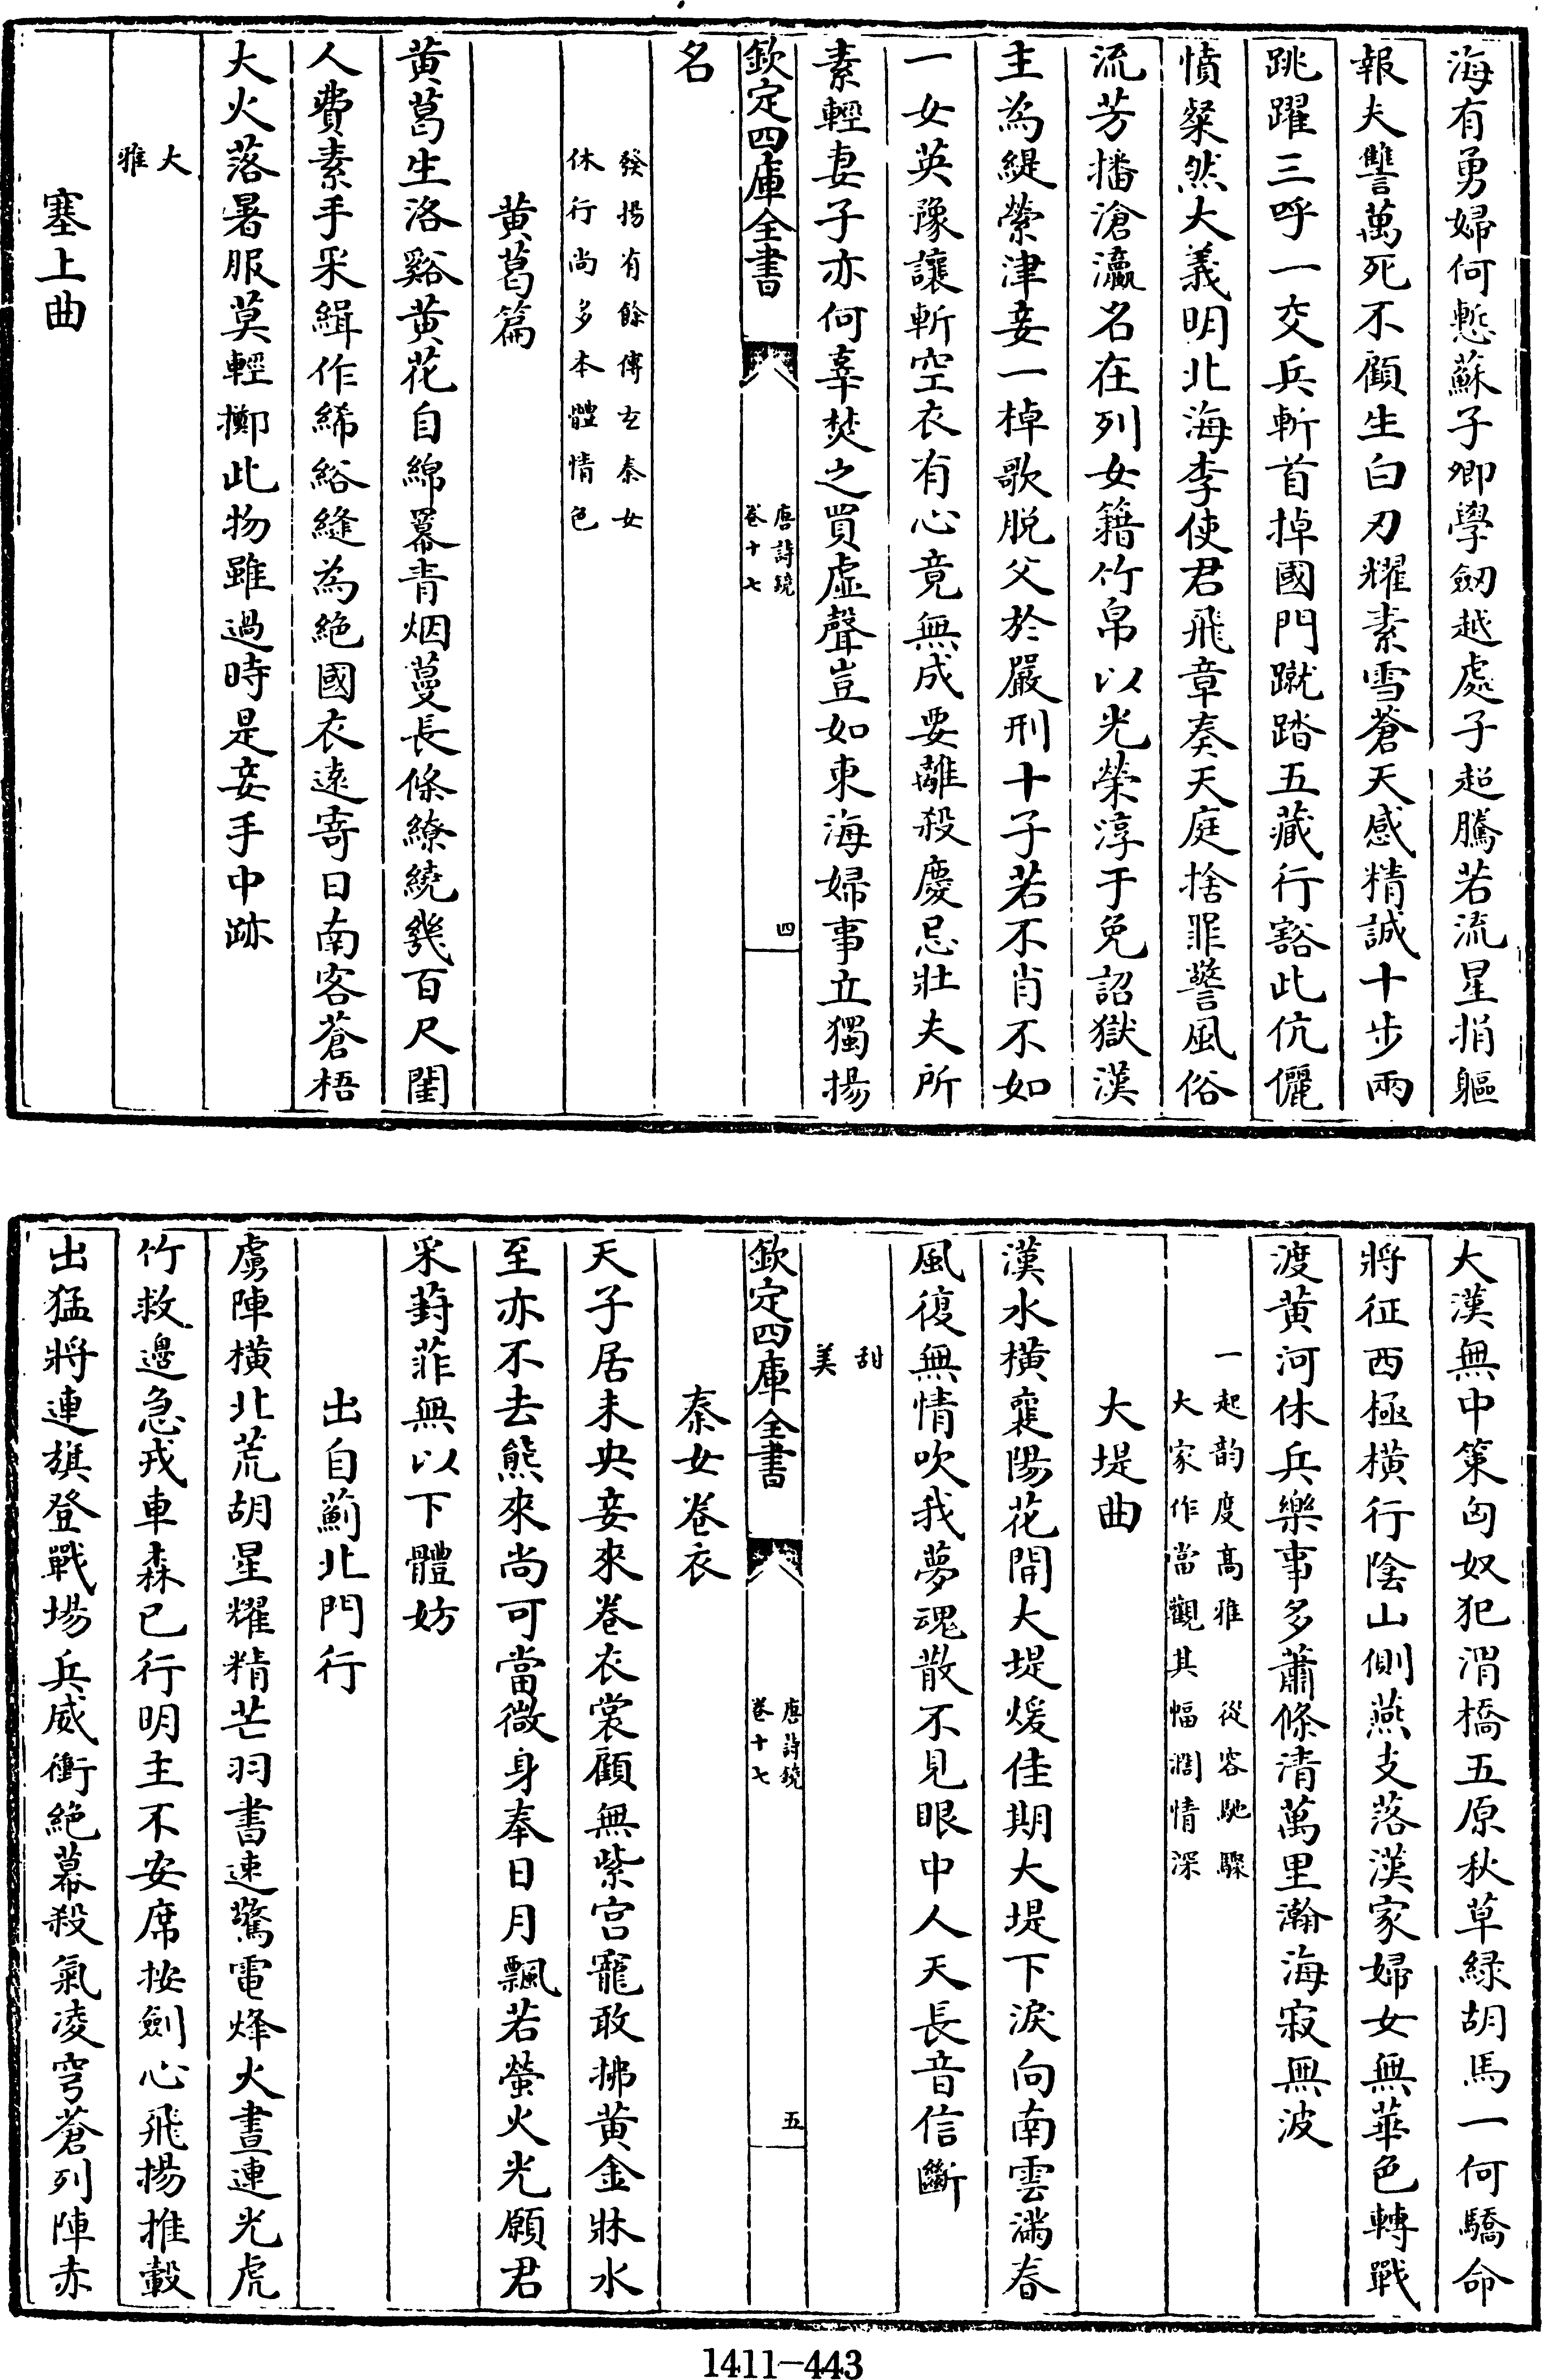 海有勇婦何慙蘇子卿學劒越處子超騰若流星捐軀
報夫讐萬死不顧生白刃耀素雪蒼天感精誠十步兩
跳躍三呼一交兵斬首掉國門蹴踏五藏行豁此伉儷
憤粲然大義明北海李使君飛章奏天庭捨罪警風俗
流芳播滄瀛名在列女籍竹帛以光榮淳于免詔獄漢
主為緹縈津妾一棹歌脱父於嚴刑十子若不肖不如
一女英豫讓斬空衣有心竟無成要離殺慶忌壯夫所
素輕妻子亦何辜焚之買虚聲豈如東海婦事立獨揚
欽定四庫全書
唐詩鏡
卷十七
四
名
發揚有餘傅玄秦女
休行尚多本體情色
黄葛篇
黄葛生洛谿黄花自綿羃青烟蔓長條繚繞幾百尺閨
人費素手采緝作絺綌縫為絶國衣逺寄日南客蒼梧
大火落暑服莫輕擲此物雖過時是妾手中跡
大
雅
塞上曲
大漢無中策匈奴犯渭橋五原秋草緑胡馬一何驕命
將征西極横行陰山側燕支落漢家婦女無華色轉戰
渡黄河休兵樂事多蕭條清萬里瀚海寂無波
一起韵度高雅 從容馳驟
大家作當觀其幅濶情深
大堤曲
漢水横襄陽花開大堤煖佳期大堤下淚向南雲滿春
風復無情吹我夢魂散不見眼中人天長音信斷
甜
美
欽定四庫全書
唐詩鏡
卷十七
五
秦女卷衣
天子居未央妾來卷衣裳顧無紫宫寵敢拂黄金牀水
至亦不去熊來尚可當微身奉日月飄若螢火光願君
采葑菲無以下體妨
出自薊北門行
虜陣横北荒胡星耀精芒羽書速驚電烽火晝連光虎
竹救邊急戎車森已行明主不安席按劍心飛揚推轂
出猛將連旗登戰場兵威衝絶幕殺氣凌穹蒼列陣赤
1411-443